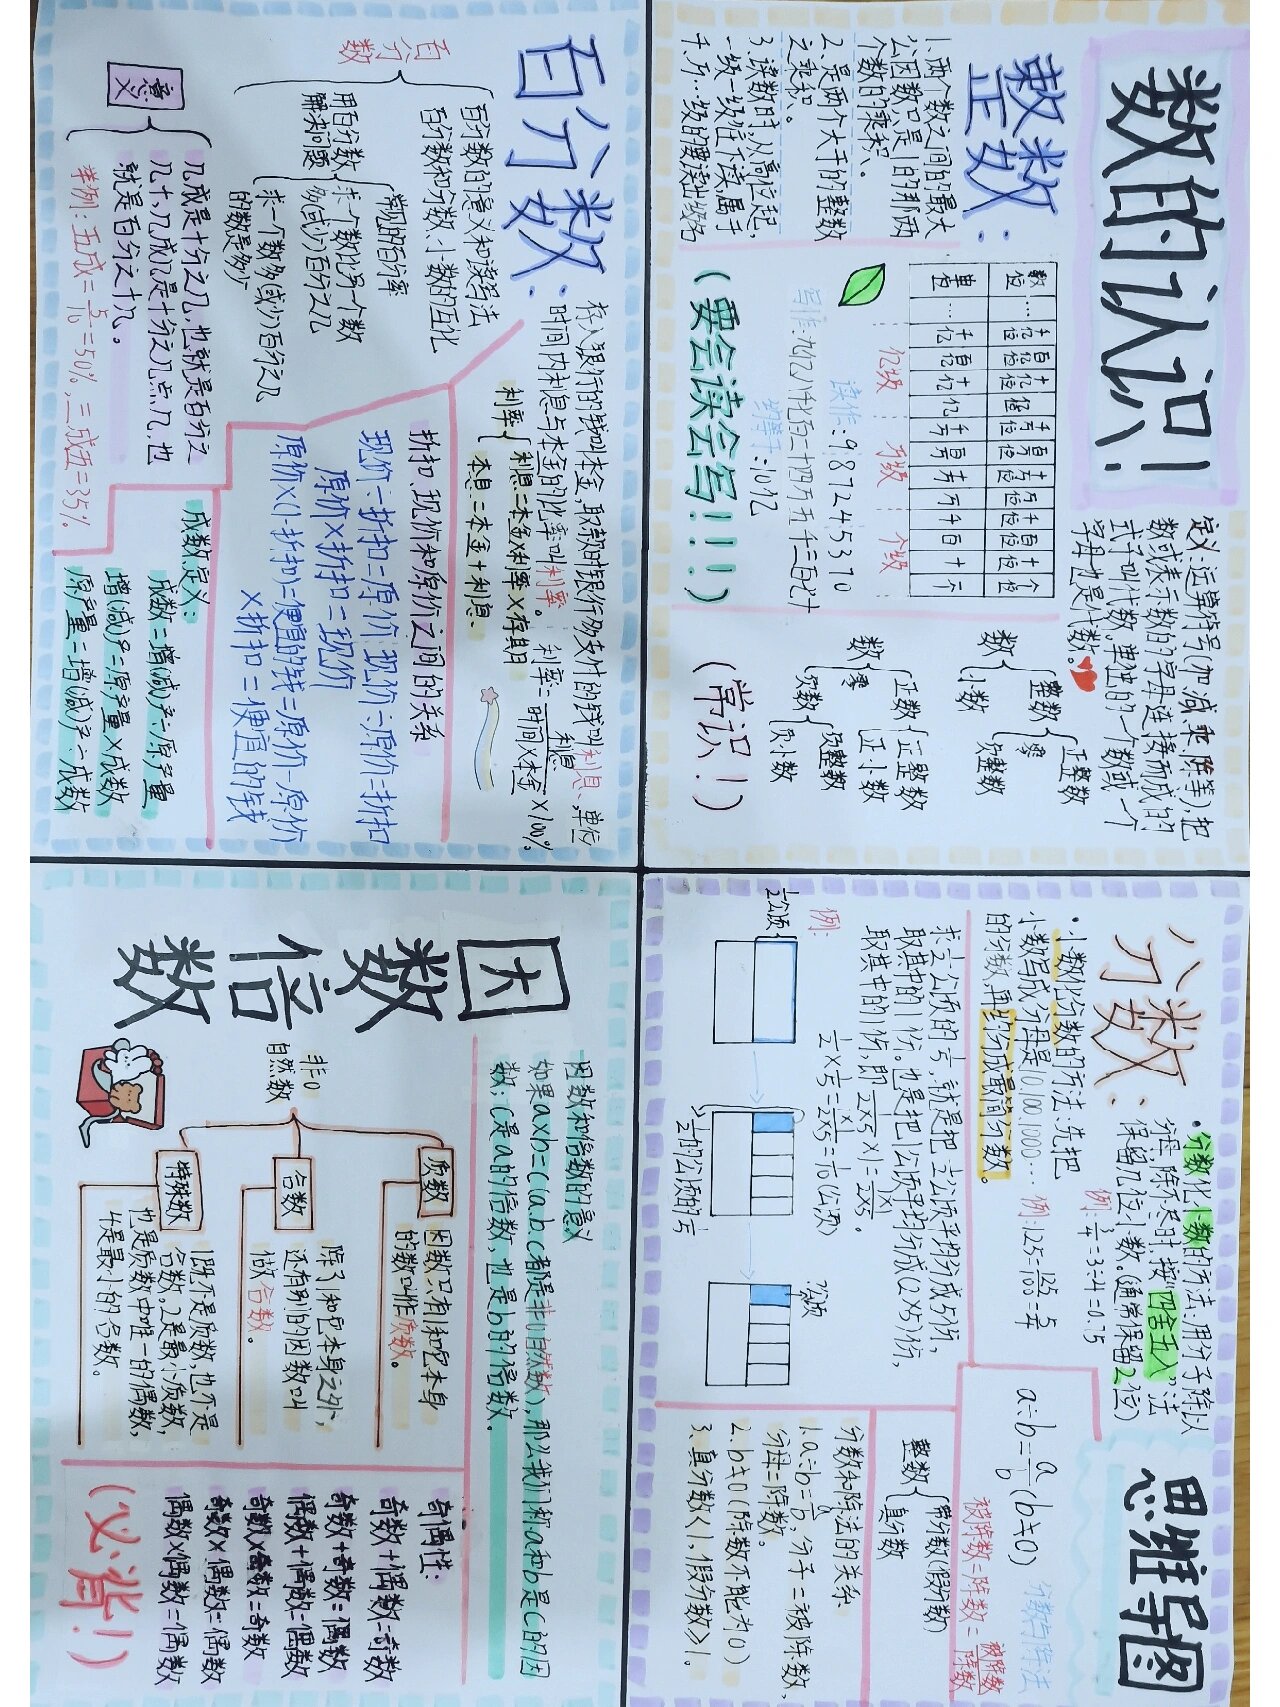 数的认识!
整数:
1、两个数之间的最大
公因数只是1的那两
个数的乘积、
2、是两个大于的整数
之乘积、
3、读数时,从高位起,
一级一级往下读,属于
定义:运算符号(加、减、乘、除等),把
数或表示数的字母连接而成的
式子叫代数,单独的一个数或一个
字母也是代数。
数位 … 千亿位 百亿位 十亿位 亿位 千万位 百万位 十万位 万位 千位 百位 十位 个位
单位 … 千亿 百亿 十亿 亿 千万 百万 十万 万 千 百 十 个
亿级 万级 个级
读作:987245370
(要会读会写!!!!)
数
整数
正整数
零
负整数
小数
数
正数
正整数
正小数
零
负数
负整数
负小数
(常识!)
思维导图
分数:
·分数化小数的方法:用分子除以
分母,除不尽时,按“四舍五入”法
保留几位小数。(通常保留2位)
例:3/4=3÷4=0.75
·小数化分数的方法:先把
小数写成分母是10 100 1000…
的分数,再约分成最简分数。
例:1.25=125/100=5/4
求1/2公顷的1/5,就是把1/2公顷平均分成5份,
取其中的1份。也是把1公顷平均分成(2×5)份,
取其中的1份,即1/2×5×1=1×1/2×5。
1/2×1/5=1×1/2×5=1/10(公顷)
例:
1/2公顷
1/2的公顷的1/5
?公顷
分数与除法
a÷b=a/b(b≠0)
被除数÷除数=被除数/除数
整数
带分数(假分数)
真分数
分数和除法的关系
1.a÷b=a/b,分子=被除数,
分母=除数。
2.b≠0(除数不能为0)
3、真分数<1,假分数≥1。
百分数:
百分数
百分数的意义和读写法
百分数和分数、小数的互化
用百分数
解决问题
常见的百分率
求一个数比另一个数
多(或少)百分之几
求一个数多(或少)百分之几
的数是多少
意义
几成是十分之几,也就是百分之
几十,几成几是十分之几点几,也
就是百分之十几。
举例:五成=5/10=50%,三成五=35%
存入银行的钱叫本金,取款时银行多支付的钱叫利息,单位
时间内利息与本金的比率叫利率。
利率=利息/时间×本金×100%
利率
利息=本金×利率×存期
本息=本金+利息
折扣、现价和原价之间的关系
现价÷折扣=原价 现价÷原价=折扣
原价×折扣=现价
原价×(1-折扣)=便宜的钱=原价-原价
×折扣=便宜的钱
成数定义:
成数=增(减)产÷原产量
增(减)产=原产量×成数
原产量=增(减)产÷成数
因数倍数
因数和倍数的意义
如果a×b=c(a、b、c都是非0自然数),那么我们称a和b是c的因
数;c是a的倍数,也是b的倍数。
非0
自然数
质数
因数只有1和它本身
的数叫作质数。
合数
除了1和它本身之外,
还有别的因数叫
做合数。
特殊数
1既不是质数,也不是
合数。2是最小质数,
也是质数中唯一的偶数,
4是最小的合数。
奇偶性:
奇数+偶数=奇数
奇数+奇数=偶数
偶数+偶数=偶数
奇数×奇数=奇数
奇数×偶数=偶数
偶数×偶数=偶数
(必背!)